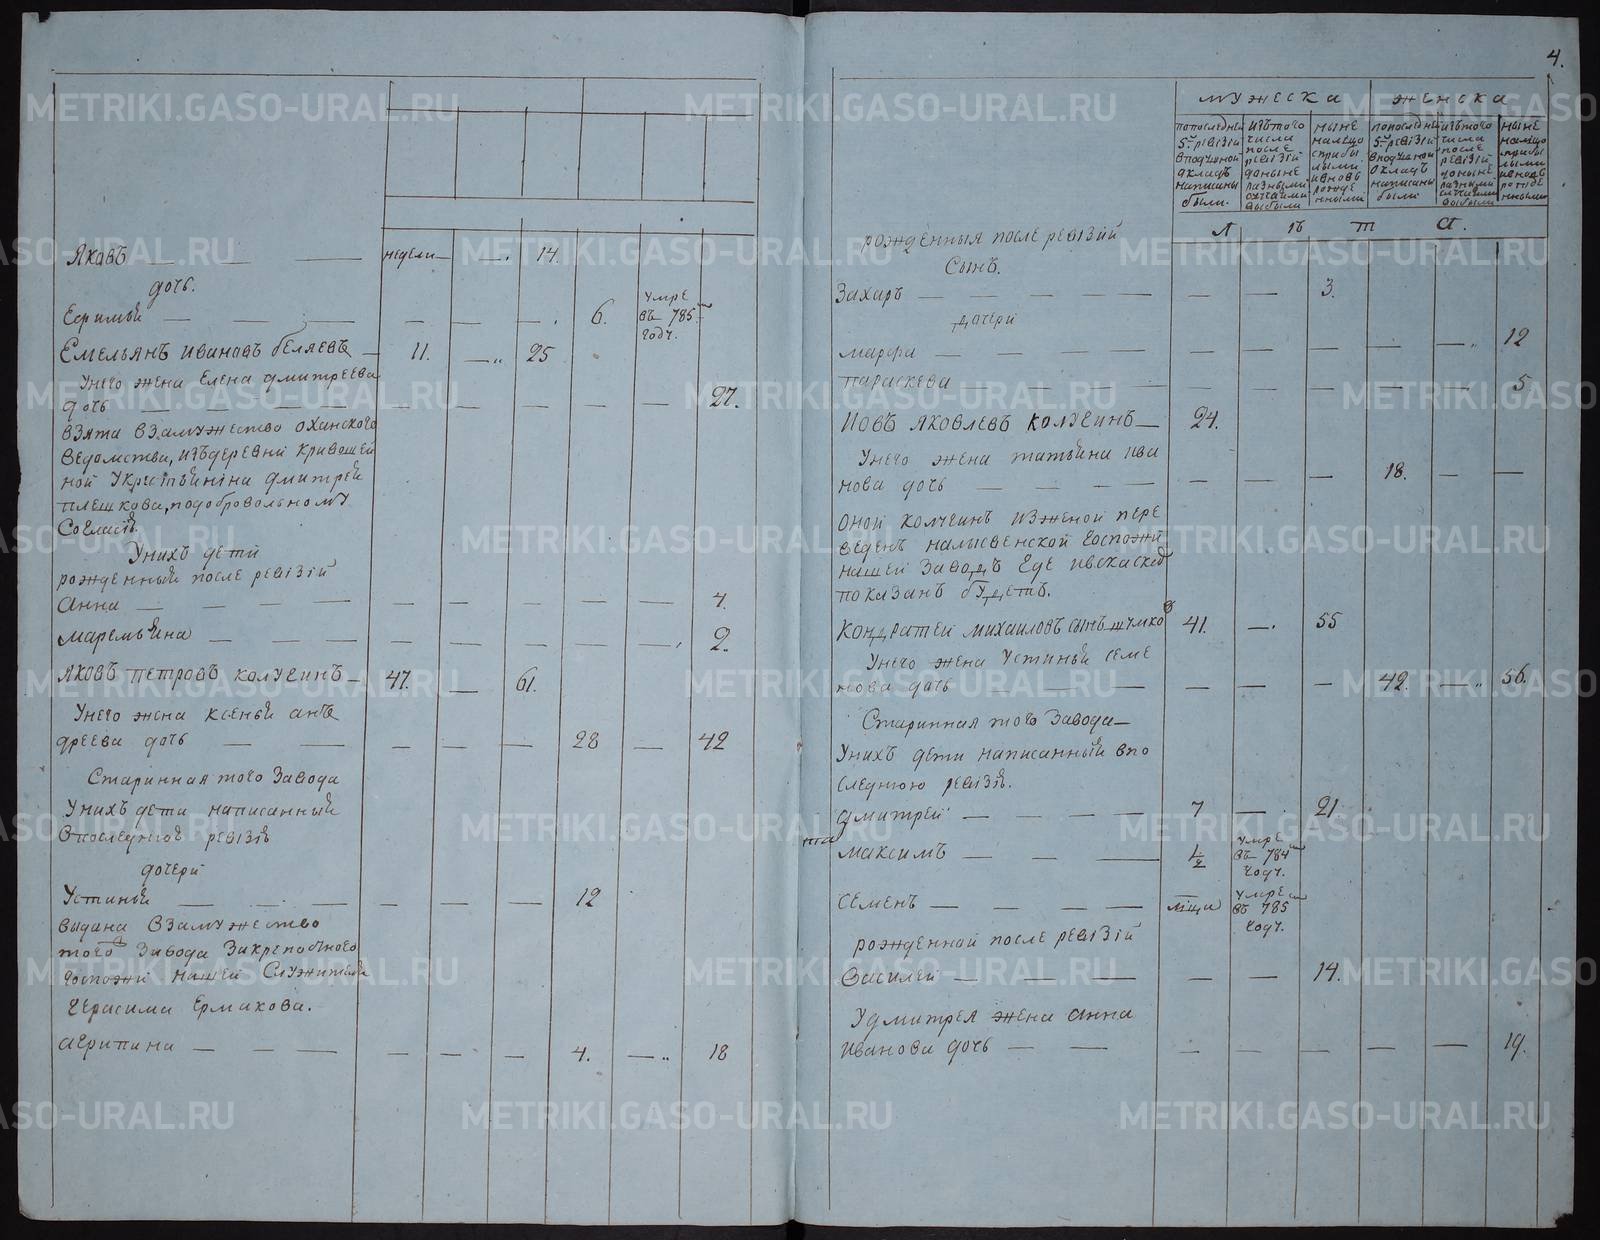 Яковъ — — — недели — 14.
дочь.
Ефимья — — — — — — 6. умре въ 785 м годҍ.
Емельянъ Ивановъ беляевъ — 11. — 25
Унего жена Елена дмитреева
дочь — — — — — — — — 27.
взята взамужество оханского
ведомства, изъдеревни кривощей
ной укрестьянина дмитрея
плешкова, подобровольному
Согласію
Унихъ дети
рожденныя после ревизіи
Анна — — — — — — — — 4.
маремьяна — — — — — — — 2.
Яковъ петровъ колчинъ — 47. — 61.
Унего жена ксенья анъ
дреева дочь — — — — — 28 — 42
Старинная того Завода
Унихъ дети написанныя
впоследнюю ревизію
дочери
Устинья — — — — — — 12
выдана взамужество
того Завода Закрепостного
госпожи нашей Служителя
Герасима Ермакова.
агрипина — — — — — — 4. — 18
4.
мужеска женска
попоследней 5й ревизіи вподушной окладъ написаны были.
изътого числа после ревизіи доныне разными случаями выбыли
ныне налицо сприбылыми ивновь рожденными
попоследней 5й ревизіи вподушной окладъ написаны были
изътого числа после ревизіи доныне разными случаями выбыли
ныне налицо сприбылыми ивновь рожденными
Л ѣ т а.
рожденныя после ревизіи
Сынъ.
Захаръ — — — — — — 3.
дочери
марфа — — — — — — — — — 12
параскева — — — — — — — — 5
Иовъ Яковлевъ колчинъ — 24.
Унего жена татьяна ива
нова дочь — — — — — — — 18. — —
оной колчинъ изженой пере
веденъ налысвенской госпожи
нашей Заводъ Где ивскаске
показанъ будетъ.
Кондратей михаиловъ сынъ шумковъ 41. — 55
Унего жена устинья семе
нова дочь — — — — — — 42. — 56.
Старинная того Завода —
Унихъ дети написанныя впо
следнюю ревизію.
дмитрей — — — — 7 — 21.
максимъ — — — ½ умре въ 784 м годҍ.
семенъ — — — — умре въ 785 м годҍ.
рожденной после ревизіи
Василей — — — — — — 14.
Удмитрея жена анна
Иванова дочь — — — — — — — — 19.